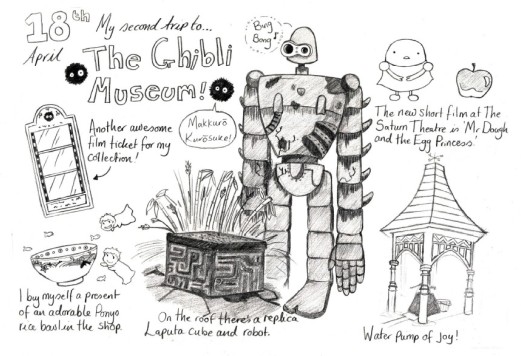 18th
April
My second trip to...
The Ghibli
Museum!
Bing
Bong
♪
Makkurō
Kurōsuke!
Another awesome
film ticket for my
collection!
The new short film at The
Saturn Theatre is 'Mr Dough
and the Egg Princess.
I buy myself a present
of an adorable Ponyo
rice bowl in the shop.
On the roof there's a replica
Laputa cube and robot.
Water Pump of Joy!